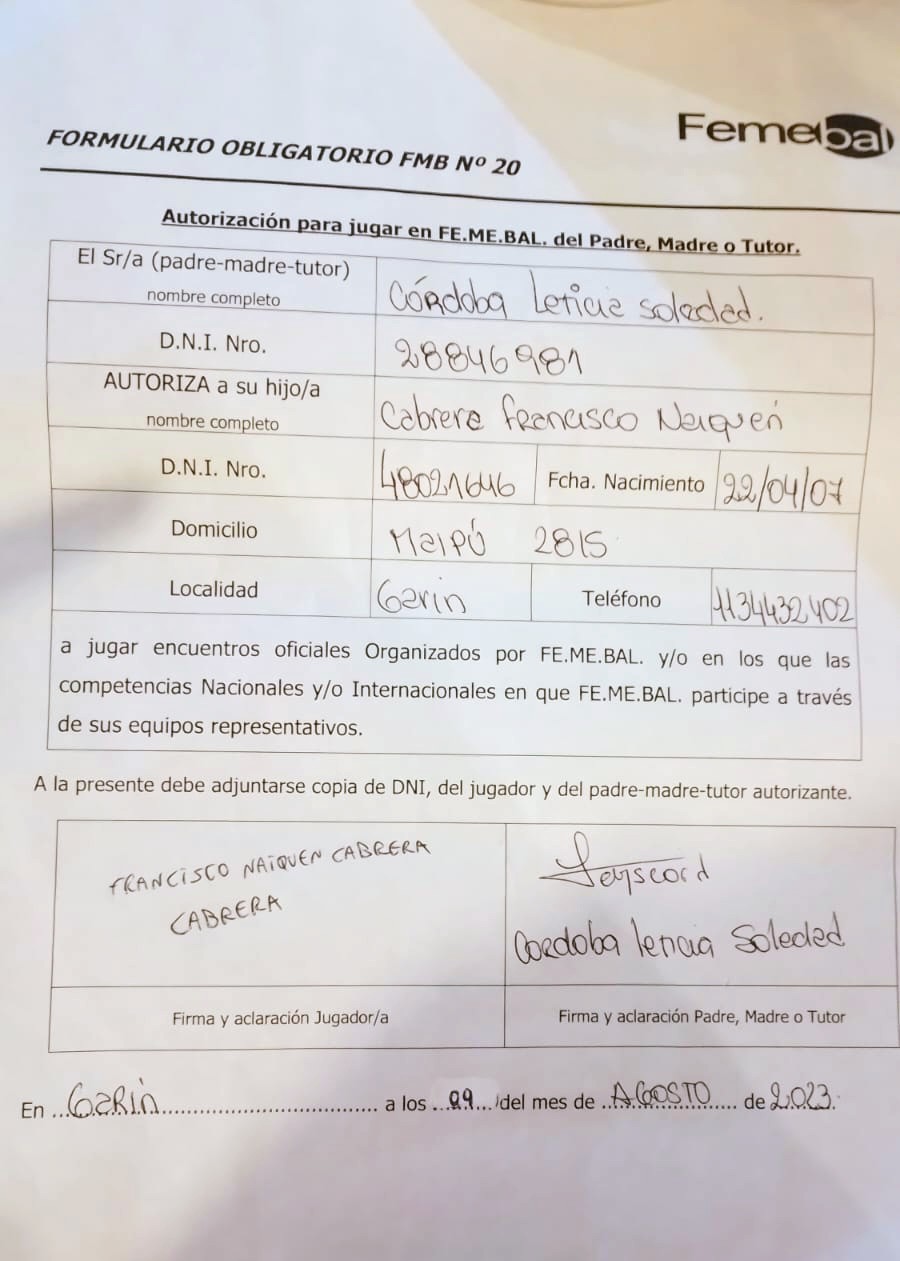 Femebal
FORMULARIO OBLIGATORIO FMB Nº 20
Autorización para jugar en FE.ME.BAL. del Padre, Madre o Tutor.
El Sr/a (padre-madre-tutor)
nombre completo
Córdoba Leticia Soledad.
D.N.I. Nro.
28846981
AUTORIZA a su hijo/a
nombre completo
Cabrera Francisco Naiquén
D.N.I. Nro.
48021646
Fcha. Nacimiento
22/04/07
Domicilio
Maipú 2815
Localidad
Garin
Teléfono
1134432402
a jugar encuentros oficiales Organizados por FE.ME.BAL. y/o en los que las
competencias Nacionales y/o Internacionales en que FE.ME.BAL. participe a través
de sus equipos representativos.
A la presente debe adjuntarse copia de DNI, del jugador y del padre-madre-tutor autorizante.
FRANCISCO NAIQUEN CABRERA
CABRERA
Cordoba Leticia Soledad
Firma y aclaración Jugador/a
Firma y aclaración Padre, Madre o Tutor
En ...GaRiN... a los ... del mes de ...AGOSTO... de 2023.